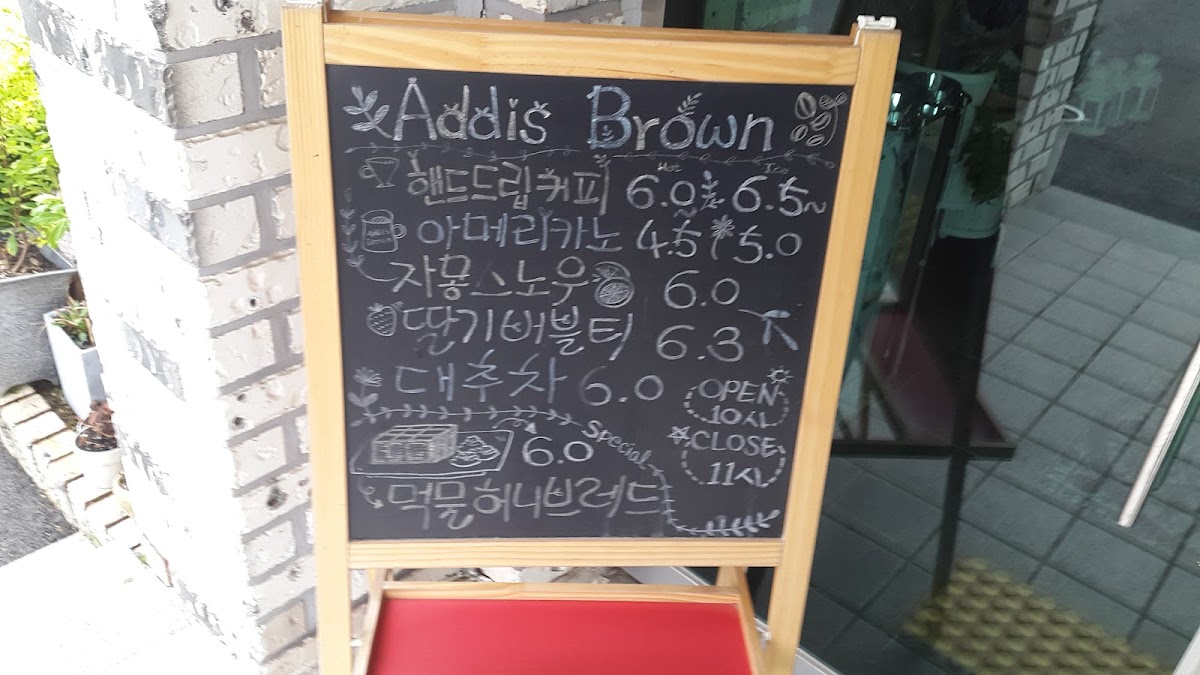 Addis Brown
Hot Ice
핸드드립커피 6.0~ 6.5~
아메리카노 4.5 / 5.0
자몽스노우 6.0
딸기버블티 6.3
대추차 6.0
OPEN
10시
CLOSE
11시
Special
6.0
먹물허니브레드